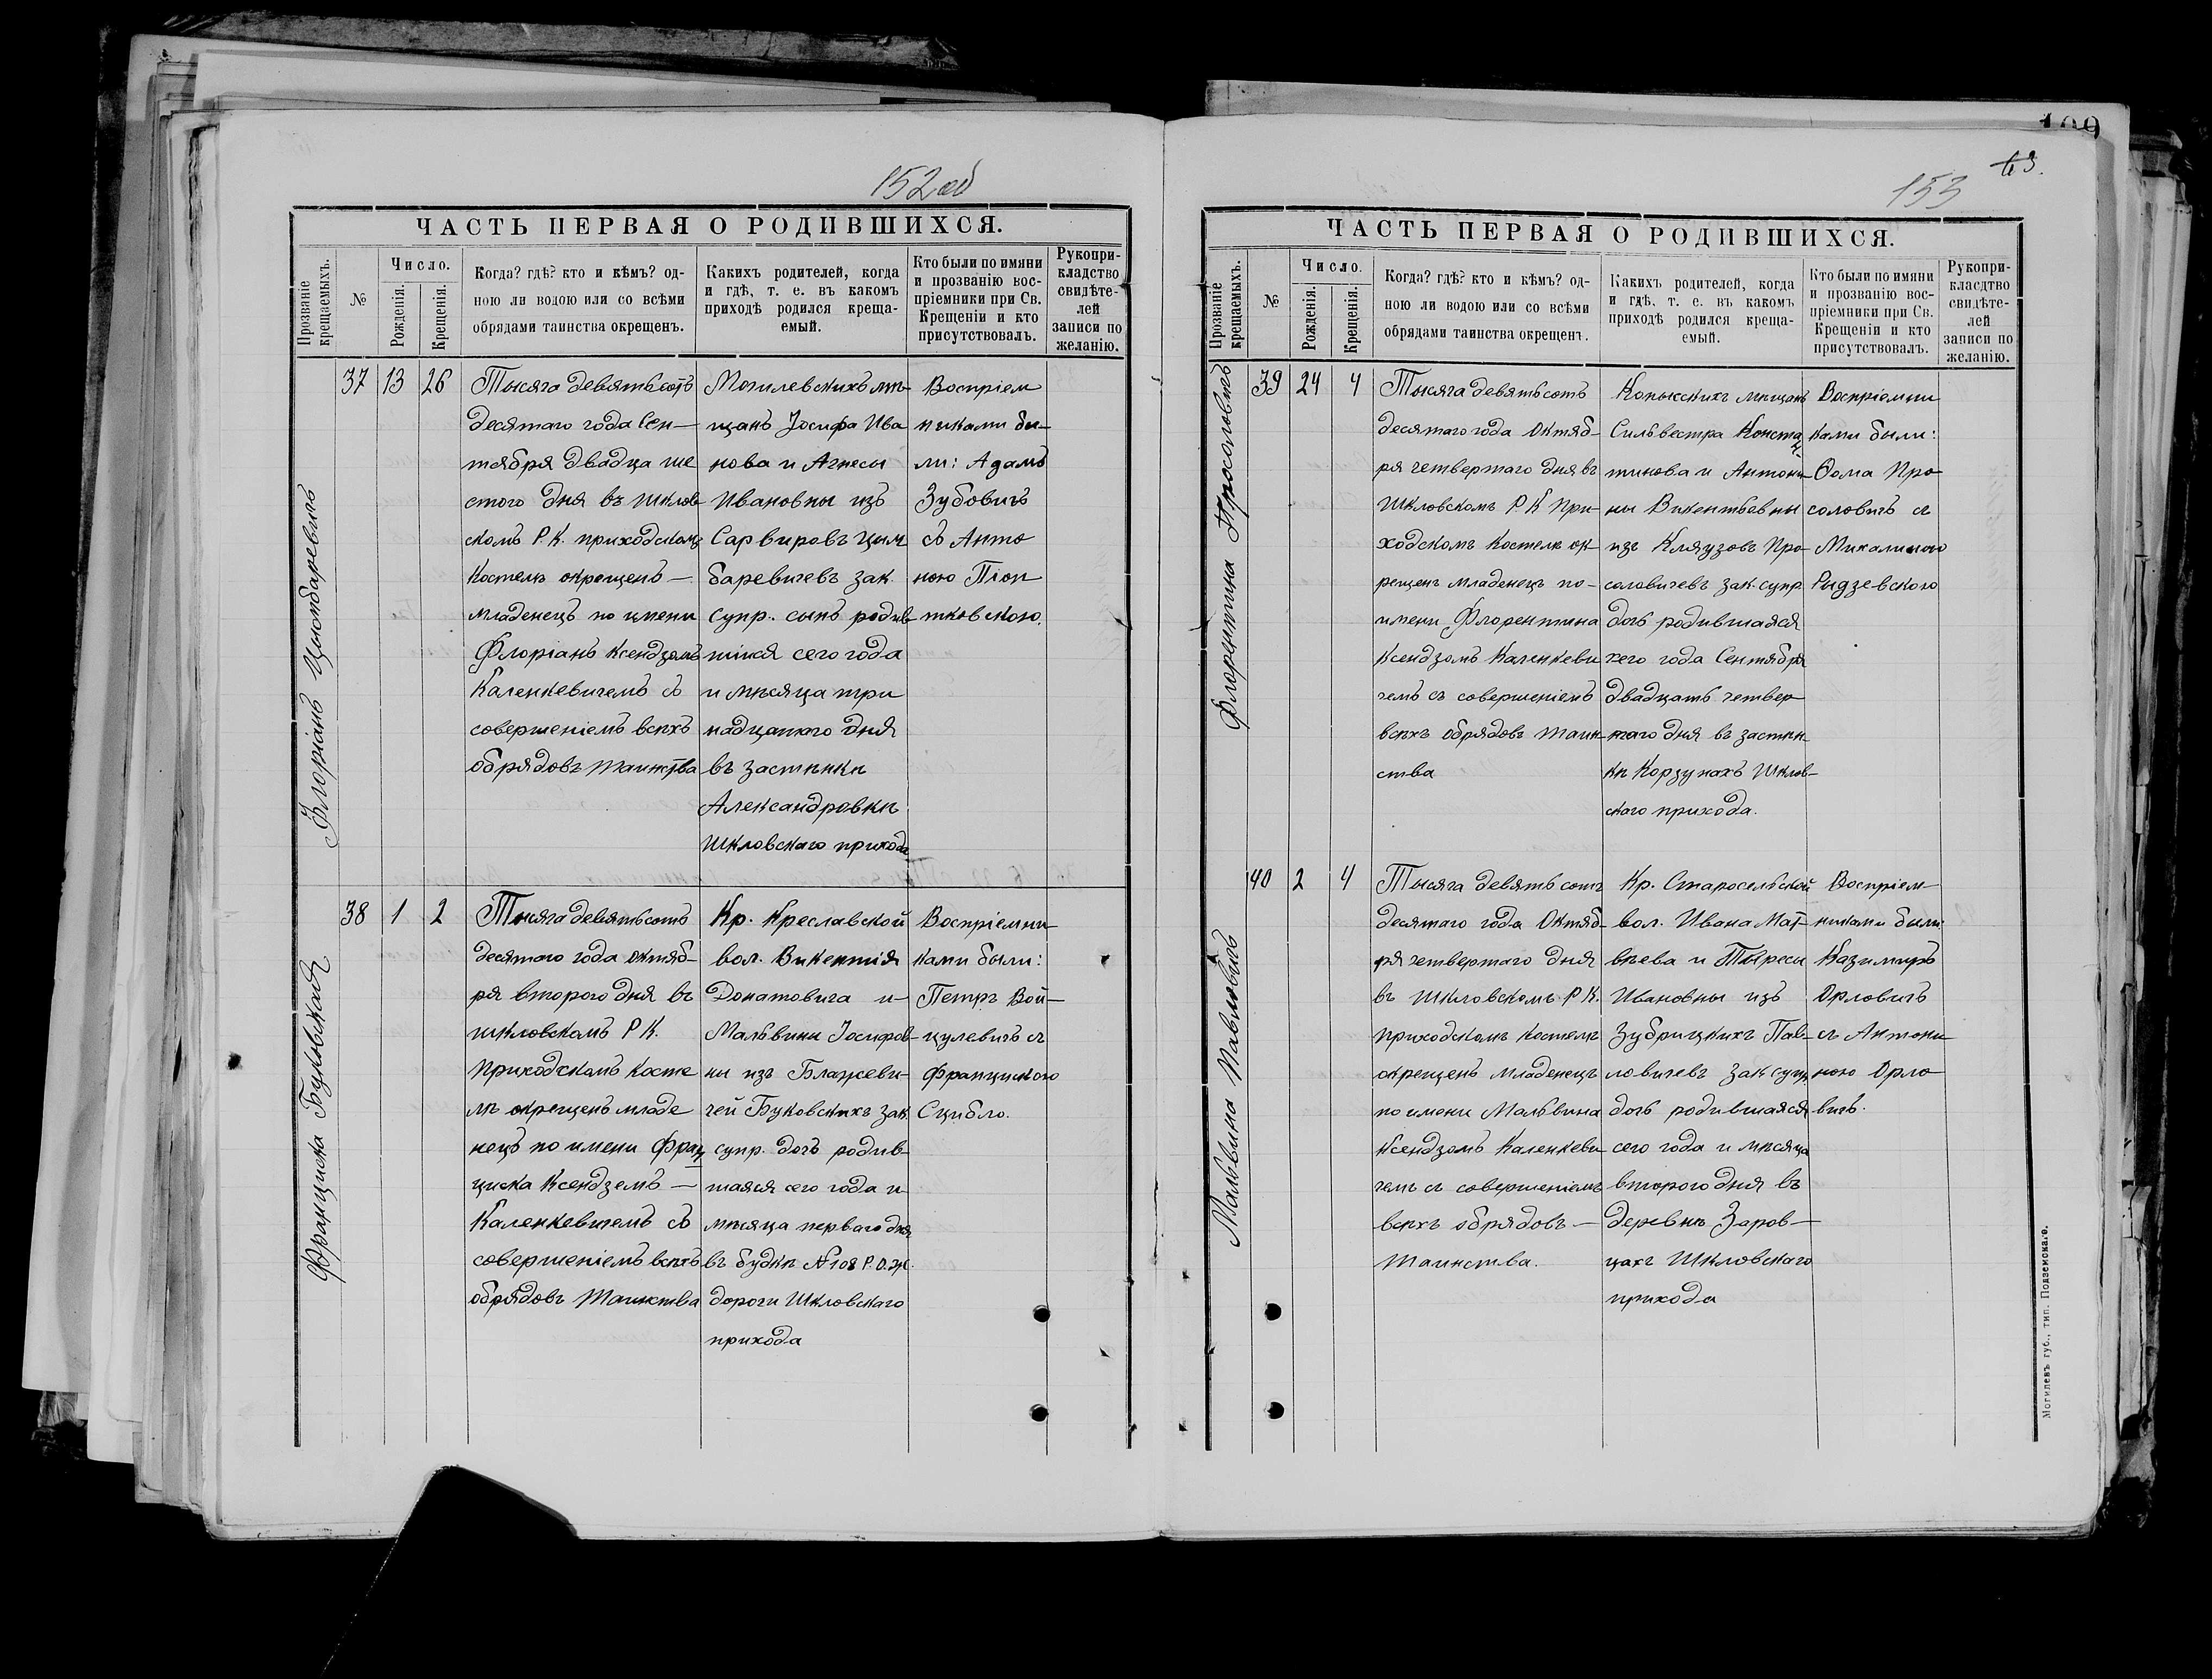 152 об
ЧАСТЬ ПЕРВАЯ О РОДИВШИХСЯ.
Прозваніе крещаемыхъ.
№
Число.
Рожденія.
Крещенія.
Когда? гдѣ? кто и кѣмъ? од-
ною ли водою или со всѣми
обрядами таинства окрещенъ.
Какихъ родителей, когда
и гдѣ, т. е. въ какомъ
приходѣ родился креща-
емый.
Кто были по имяни
и прозванію вос-
пріемники при Св.
Крещеніи и кто
присутствовалъ.
Рукопри-
кладство
свидѣте-
лей
записи по
желанію.
Флоріанъ Цымбаревичъ
37
13
26
Тысяча девятьсотъ
десятаго года Сен-
тября двадца ше
стого дня въ Шклов
скомъ Р. К. приходскомъ
Костелѣ окрещенъ —
младенецъ по имени
Флоріанъ Ксендзомъ
Каленкевичемъ съ
совершеніемъ всѣхъ
обрядовъ Таинства
Могилевскихъ мѣ-
щанъ Іосифа Ива
нова и Агнесы
Ивановны изъ
Сарвировъ Цим
баревичевъ зак.
супр. сынъ родив
шійся сего года
и мѣсяца три
надцатаго дня
въ застѣнкѣ
Александровкѣ
Шкловскаго прихода
Воспріем
никами бы-
ли: Адамъ
Зубовичъ
съ Анто
ною Піон
тковскою.
Франциска Буковская
38
1
2
Тысяча девятьсотъ
десятаго года Октяб-
ря второго дня въ
Шкловскомъ Р К.
Приходскомъ Косте
лѣ окрещенъ младе
нецъ по имени Фран
циска Ксендземъ —
Каленкевичемъ съ
совершеніемъ всѣхъ
обрядовъ Таинства
Кр. Креславской
вол. Викентія
Донатовича и
Мальвины Іосифов-
ны изъ Блажеви-
чей Буковскихъ зак
супр. дочь родив-
шаяся сего года и
мѣсяца перваго дня
въ будкѣ № 108 Р. О. ж.
дороги Шкловскаго
прихода
Воспріемни-
ками были:
Петръ Вой-
цулевичъ съ
Францишкою
Сцибло.
109
43.
153
ЧАСТЬ ПЕРВАЯ О РОДИВШИХСЯ.
Прозваніе крещаемыхъ.
№
Число.
Рожденія.
Крещенія.
Когда? гдѣ? кто и кѣмъ? од-
ною ли водою или со всѣми
обрядами таинства окрещенъ.
Какихъ родителей, когда
и гдѣ, т. е. въ какомъ
приходѣ родился креща-
емый.
Кто были по имяни
и прозванію вос-
пріемники при Св.
Крещеніи и кто
присутствовалъ.
Рукопри-
класдтво
свидѣте-
лей
записи по
желанію.
Флорентина Просоловичъ
39
24
4
Тысяча девятьсотъ
десятаго года Октяб-
ря четвертаго дня въ
Шкловскомъ Р. К При-
ходскомъ Костелѣ ок-
рещенъ младенецъ по-
имени Флорентина
Ксендзомъ Каленкеви
чемъ съ совершеніемъ
всѣхъ обрядовъ Таин-
ства
Копысскихъ мѣщанъ
Сильвестра Констан-
тинова и Антони-
ны Викентьевны
изъ Кляузовъ Про-
соловичевъ зак. супр.
дочь родившаяся
сего года Сентября
двадцать четвер-
таго дня въ застѣн-
кѣ Корзунахъ Шклов-
скаго прихода.
Воспріемни
ками были:
Ѳома Про
соловичъ съ
Микалиною
Радзевскою
Мальвина Павловичъ
40
2
4
Тысяча девятьсотъ
десятаго года Октяб-
ря четвертаго дня
въ Шкловскомъ Р К.
Приходскомъ Костелѣ
окрещенъ младенецъ
по имени Мальвина
Ксендзомъ Каленкеви
чемъ съ совершеніемъ
всѣхъ обрядовъ —
Таинства.
Кр. Старосельской
вол. Ивана Мат-
вѣева и Тересы
Ивановны изъ
Зубрицкихъ Пав-
ловичевъ зак супр.
дочь родившаяся
сего года и мѣсяца
второго дня въ
деревнѣ Заров-
цахъ Шкловскаго
прихода
Воспріем-
никами были
Казимиръ
Орловичъ
съ Антони
ною Орло
вичъ.
Могилевъ губ., тип. Подземскаго.